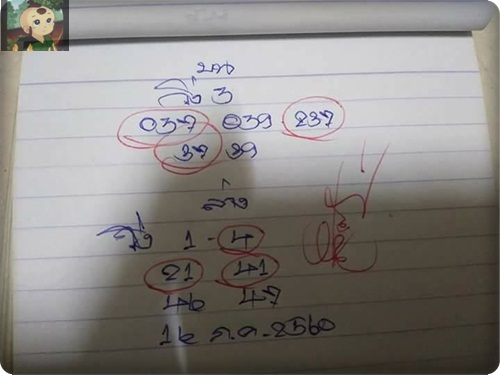 บน
วิ่ง 3
037 039 237
37 39
ล่าง
วิ่ง 1-4
21 41
46 47
16 ก.ค. 2560